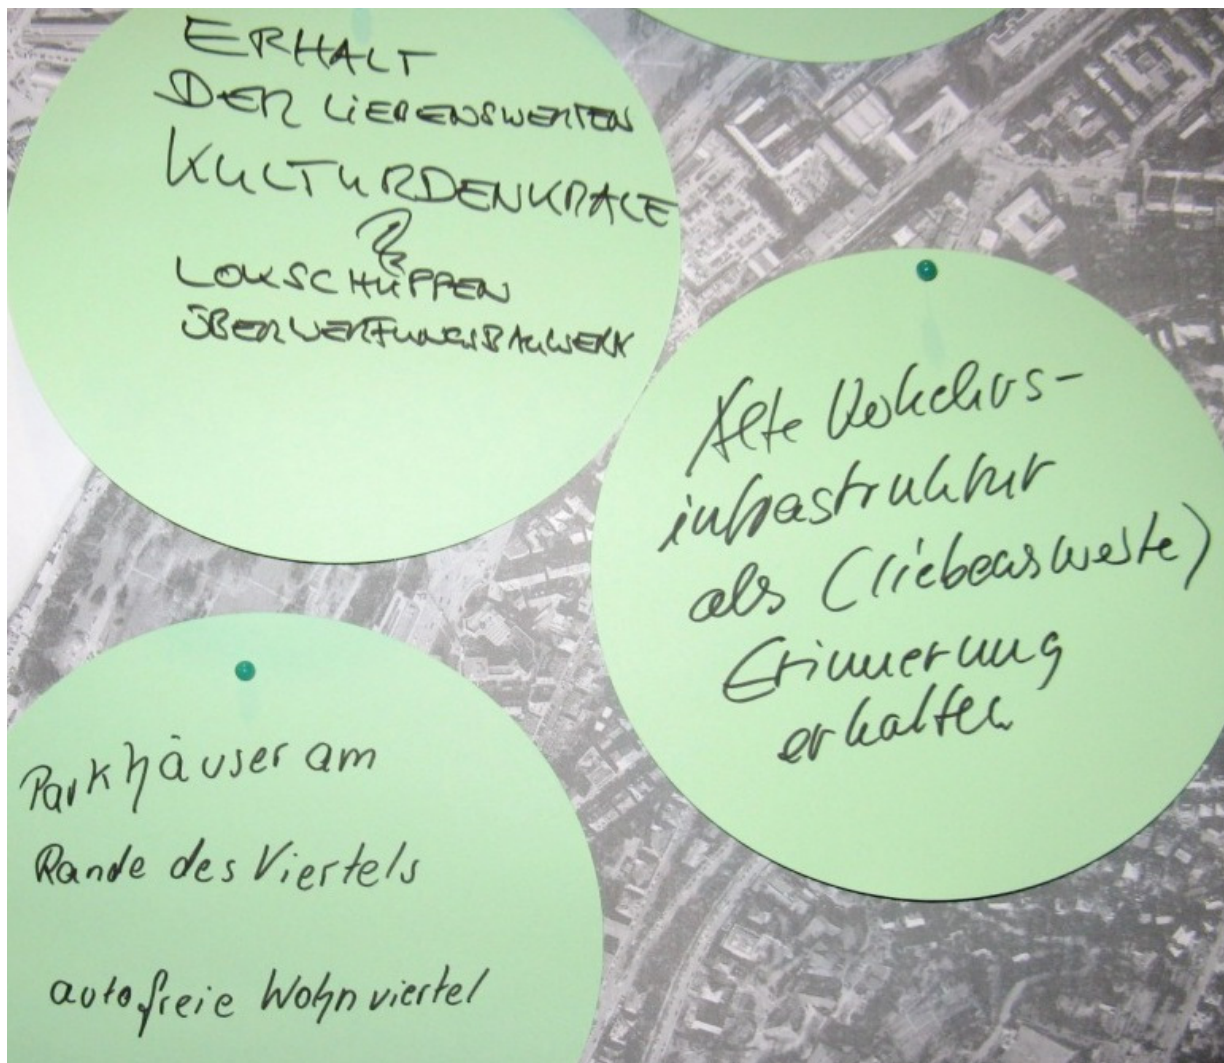 ERHALT
DER LIEBENSWERTEN
KULTURDENKMALE
LOKSCHUPPEN
ÜBERWERFUNGSBAUWERK
Alte Verkehrs-
infrastruktur
als (liebenswerte)
Erinnerung
erhalten
Parkhäuser am
Rande des Viertels
autofreie Wohnviertel